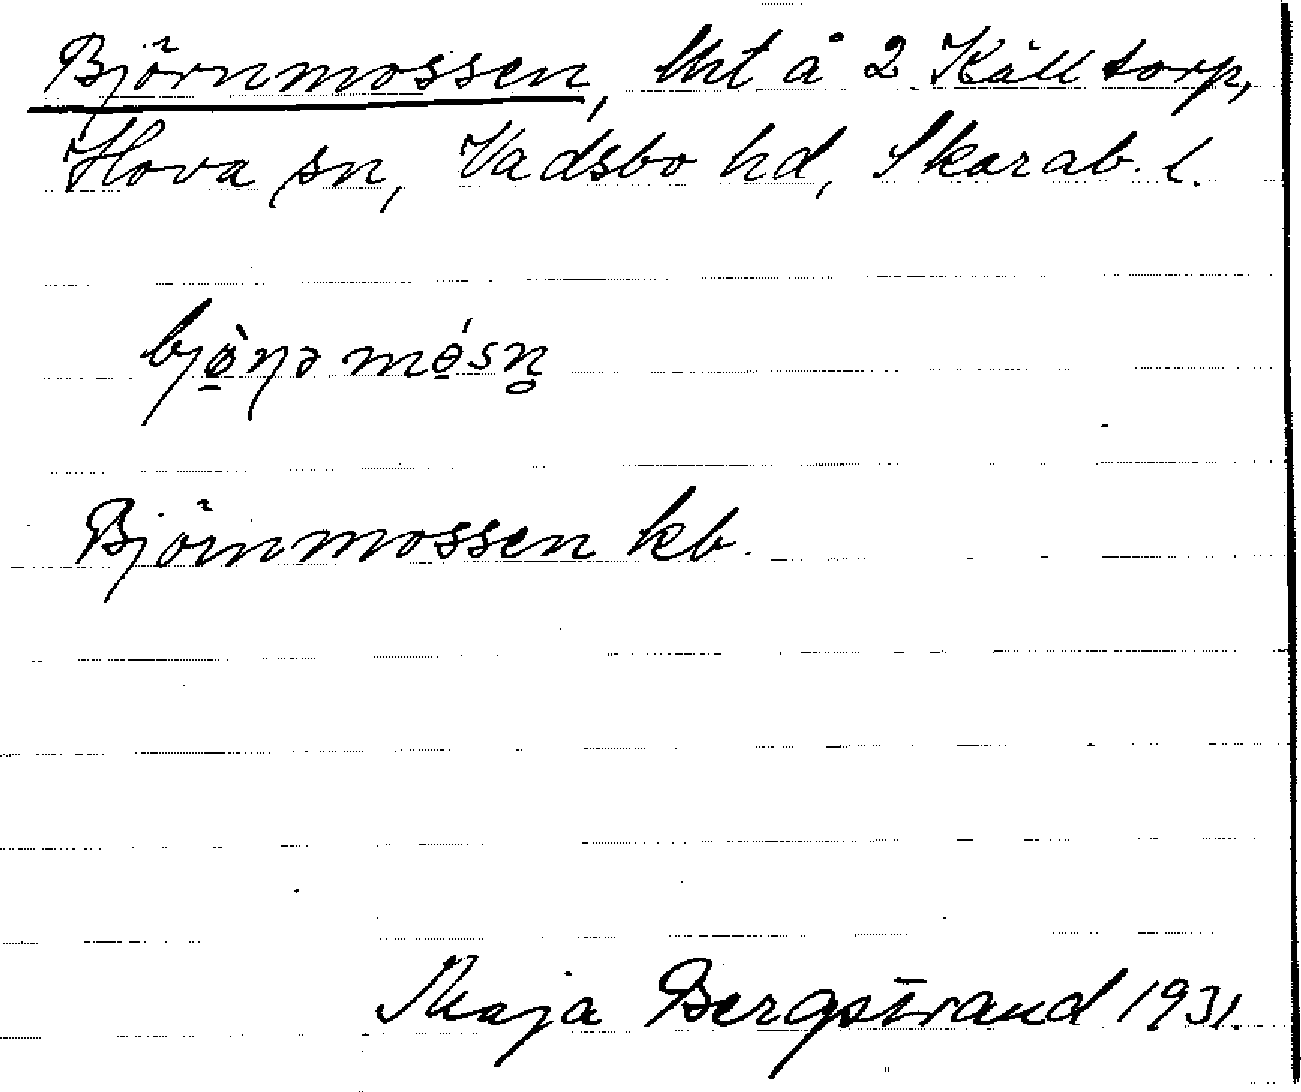 Björnmossen, lht å 2 Källtorp,
Hova sn, Vadsbo hd, Skarab. l.
Björnmossen kb.
Maja Bergstrand 1931.